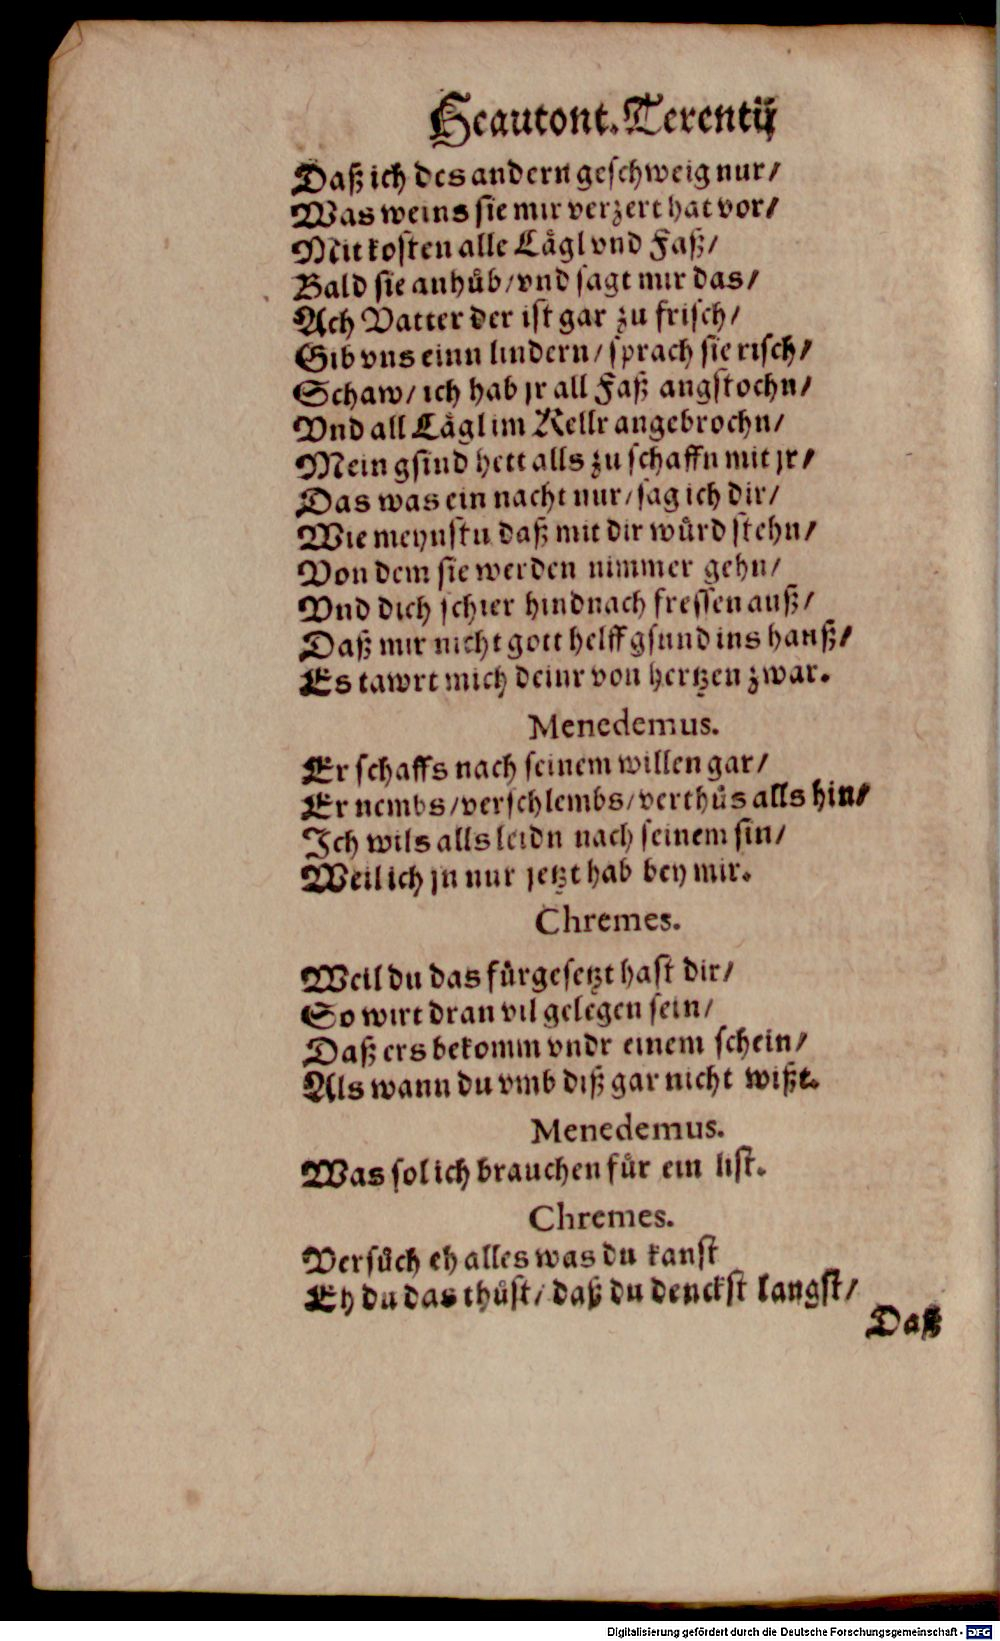 Heautont. Terentij
Daß ich des andern geschweig nur/
Was weins sie mir verzert hat vor/
Mit kosten alle Lägl vnd Faß/
Bald sie anhůb/ vnd sagt mir das/
Ach Vatter der ist gar zu frisch/
Gib vns einn lindern/ sprach sie risch/
Schaw/ ich hab jr all Faß angstochn/
Vnd all Lägl im Kellr angebrochn/
Mein gsind hett alls zu schaffn mit jr/
Das was ein nacht nur/ sag ich dir/
Wie meynstu daß mit dir würd stehn/
Von dem sie werden nimmer gehn/
Vnd dich schier hindnach fressen auß/
Daß mir nicht gott helff gsund ins hauß/
Es tawrt mich deinr von hertzen zwar.
Menedemus.
Er schaffs nach seinem willen gar/
Er nembs/ verschlembs/ verthůs alls hin/
Ich wils alls leidn nach seinem sin/
Weil ich jn nur jetzt hab bey mir.
Chremes.
Weil du das fürgesetzt hast dir/
So wirt dran vil gelegen sein/
Daß ers bekomm vndr einem schein/
Als wann du vmb diß gar nicht wißt.
Menedemus.
Was sol ich brauchen für ein list.
Chremes.
Versůch eh alles was du kanst
Eh du das thůst/ daß du denckst langst/
Daß
Digitalisierung gefördert durch die Deutsche Forschungsgemeinschaft - DFG